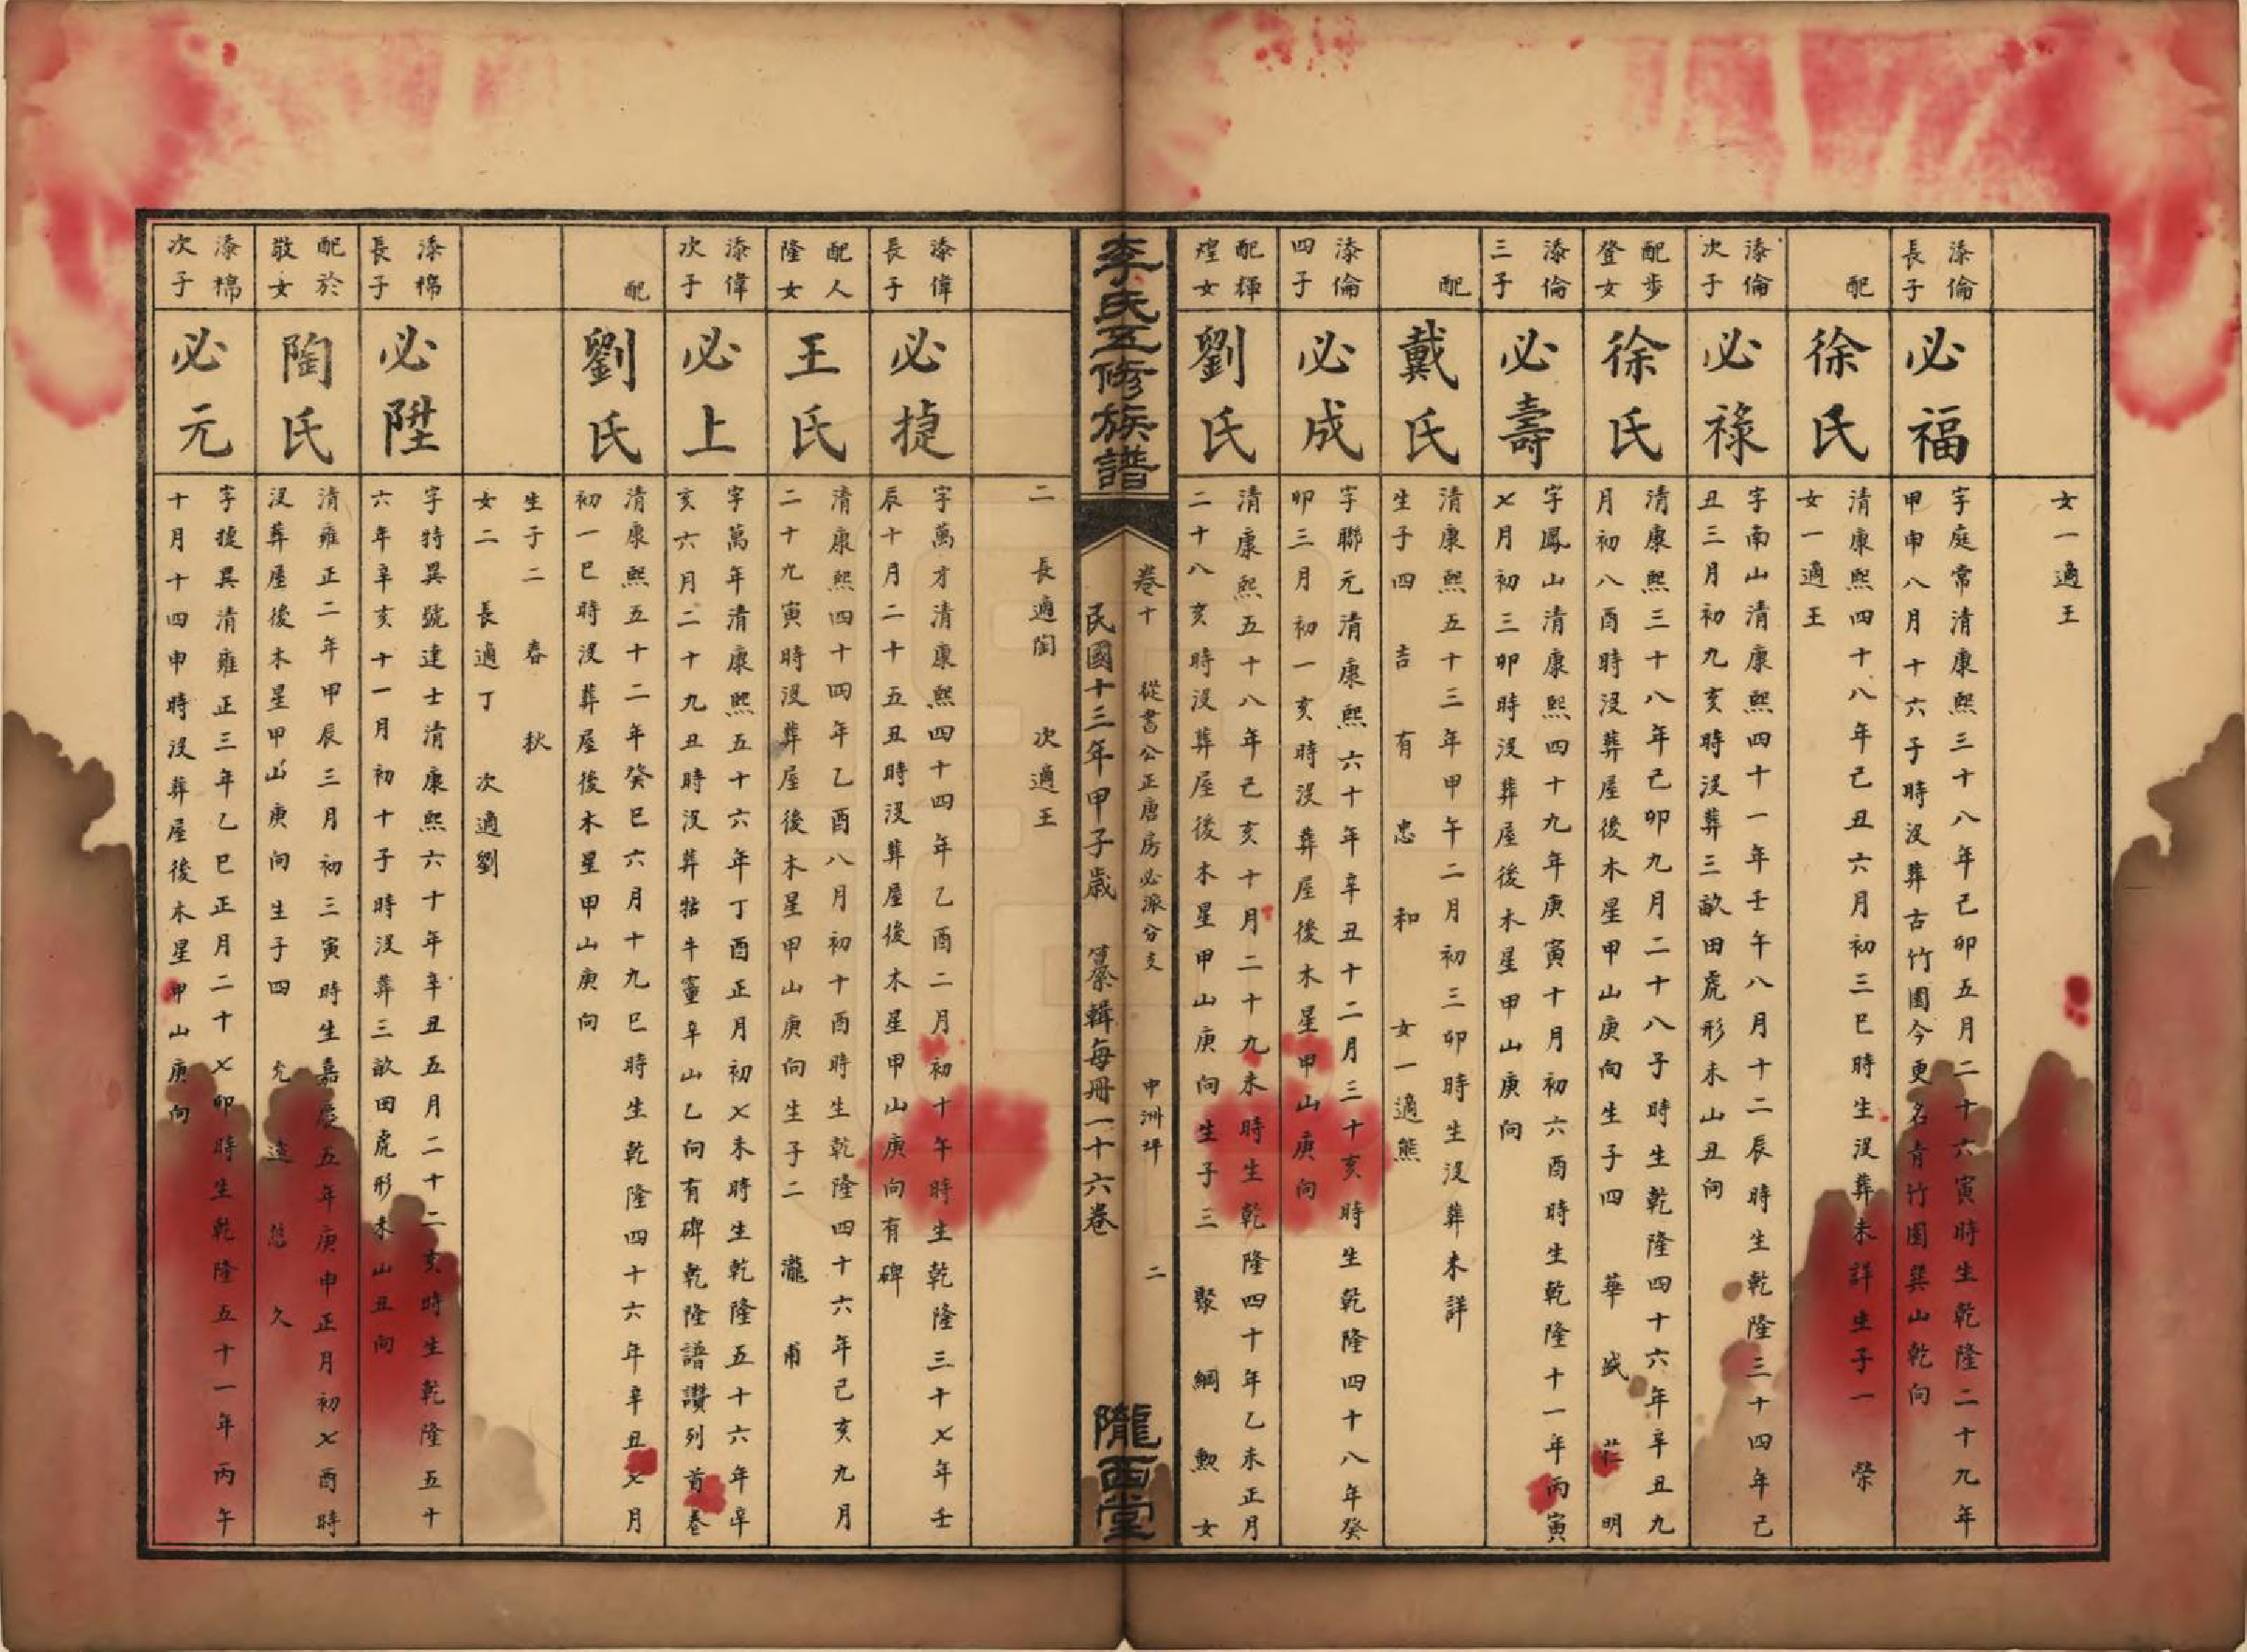 女一適王
漆倫
長子
必福
字庭常清康熙三十八年己卯五月二十六寅時生乾隆二十九年
甲申八月十六子時沒葬古竹園今更名青竹園巽山乾向
配
徐氏
清康熙四十八年己丑六月初三巳時生沒葬未詳生子一 榮
女一適王
漆倫
次子
必祿
字南山清康熙四十一年壬午八月十二辰時生乾隆三十四年己
丑三月初九亥時沒葬三畝田虎形未山丑向
配步
登女
徐氏
清康熙三十八年己卯九月二十八子時生乾隆四十六年辛丑九
月初八酉時沒葬屋後木星甲山庚向生子四 華 盛 芢 明
漆倫
三子
必壽
字鳳山清康熙四十九年庚寅十月初六酉時生乾隆十一年丙寅
七月初三卯時沒葬屋後木星甲山庚向
配
戴氏
清康熙五十三年甲午二月初三卯時生沒葬未詳
生子四 吉 有 忠 和 女一適熊
漆倫
四子
必成
字聯元清康熙六十年辛丑十二月三十亥時生乾隆四十八年癸
卯三月初一亥時沒葬屋後木星甲山庚向
配輝
煌女
劉氏
清康熙五十八年己亥十月二十九未時生乾隆四十年乙未正月
二十八亥時沒葬屋後木星甲山庚向生子三 聚 綱 勲 女
李氏五修族譜
卷十 從書公正唐房必派分支 中洲坪 二
民國十三年甲子歲 纂輯每冊一十六卷
隴西堂
二 長適陶 次適王
漆偉
長子
必捷
字萬才清康熙四十四年乙酉二月初十午時生乾隆三十七年壬
辰十月二十五丑時沒葬屋後木星甲山庚向有碑
配人
隆女
王氏
清康熙四十四年乙酉八月初十酉時生乾隆四十六年己亥九月
二十九寅時沒葬屋後木星甲山庚向生子二 瀧 甫
漆偉
次子
必上
字萬年清康熙五十六年丁酉正月初七未時生乾隆五十六年辛
亥六月二十九丑時沒葬牯牛𡨴辛山乙向有碑乾隆譜讚列首卷
配
劉氏
清康熙五十二年癸巳六月十九巳時生乾隆四十六年辛丑七月
初一巳時沒葬屋後木星甲山庚向
生子二 春 秋
女二 長適丁 次適劉
漆棉
長子
必陞
字特異號達士清康熙六十年辛丑五月二十二亥時生乾隆五十
六年辛亥十一月初十子時沒葬三畝田虎形未山丑向
配於
敬女
陶氏
清雍正二年甲辰三月初三寅時生嘉慶五年庚申正月初七酉時
沒葬屋後木星甲山庚向生子四 允 遠 悠 久
漆棉
次子
必元
字㨗異清雍正三年乙巳正月二十七卯時生乾隆五十一年丙午
十月十四申時沒葬屋後木星甲山庚向